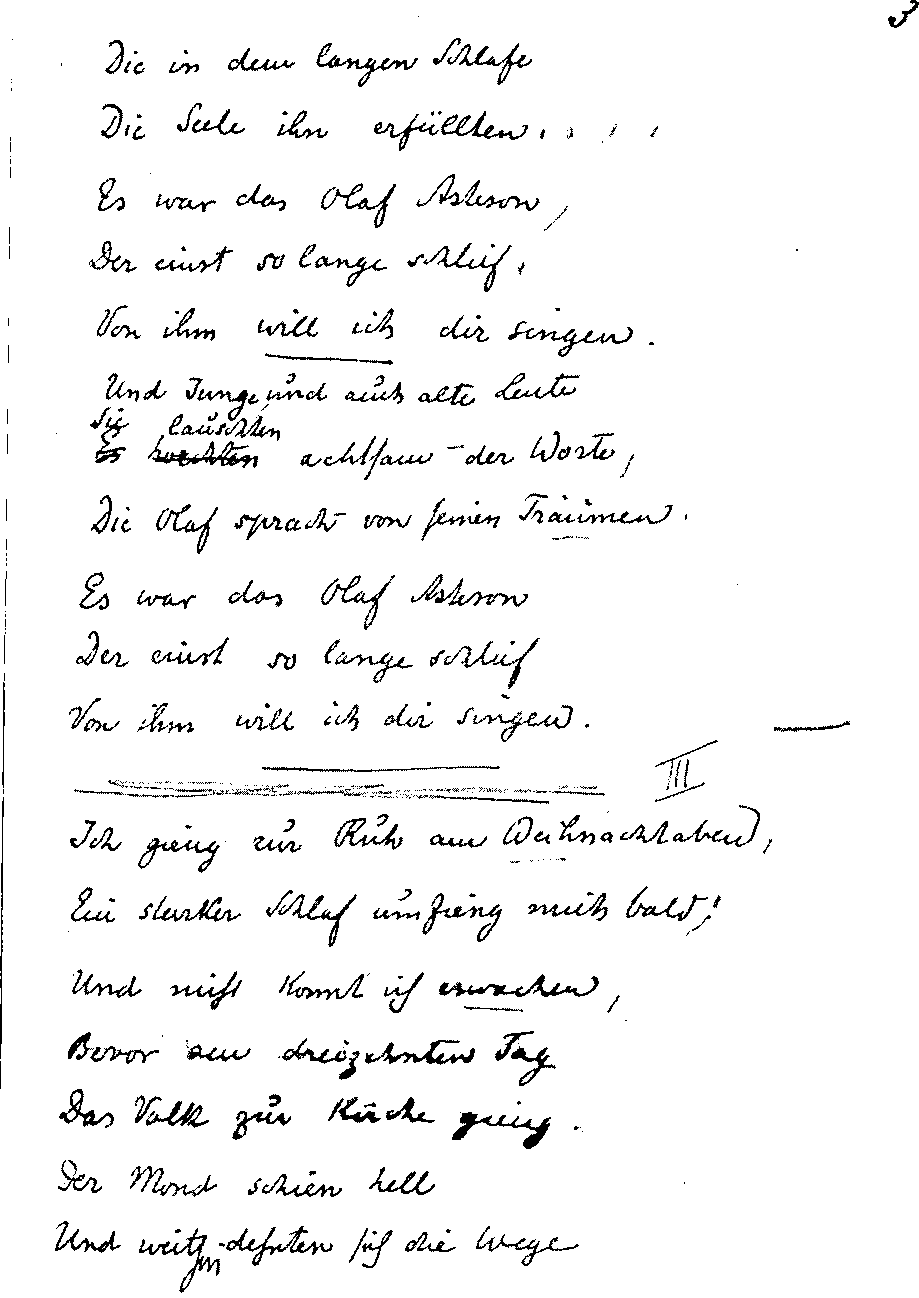 3
Die in dem langen Schlafe
Die Seele ihn erfüllten. . . .
Es war das Olaf Asteson,
Der einst so lange schlief.
Von ihm will ich dir singen.
Und Junge, und auch alte Leute
Sie lauschten
Es horchten achtsam der Worte,
Die Olaf sprach von seinen Träumen.
Es war das Olaf Asteson
Der einst so lange schlief
Von ihm will ich dir singen.
III
Ich gieng zur Ruh am Weihnachtabend,
Ein starker Schlaf umfieng mich bald;
Und nicht konnt ich erwachen,
Bevor am dreizehnten Tag
Das Volk zur Kirche gieng.
Der Mond schien hell
Und weithin dehnten sich die Wege